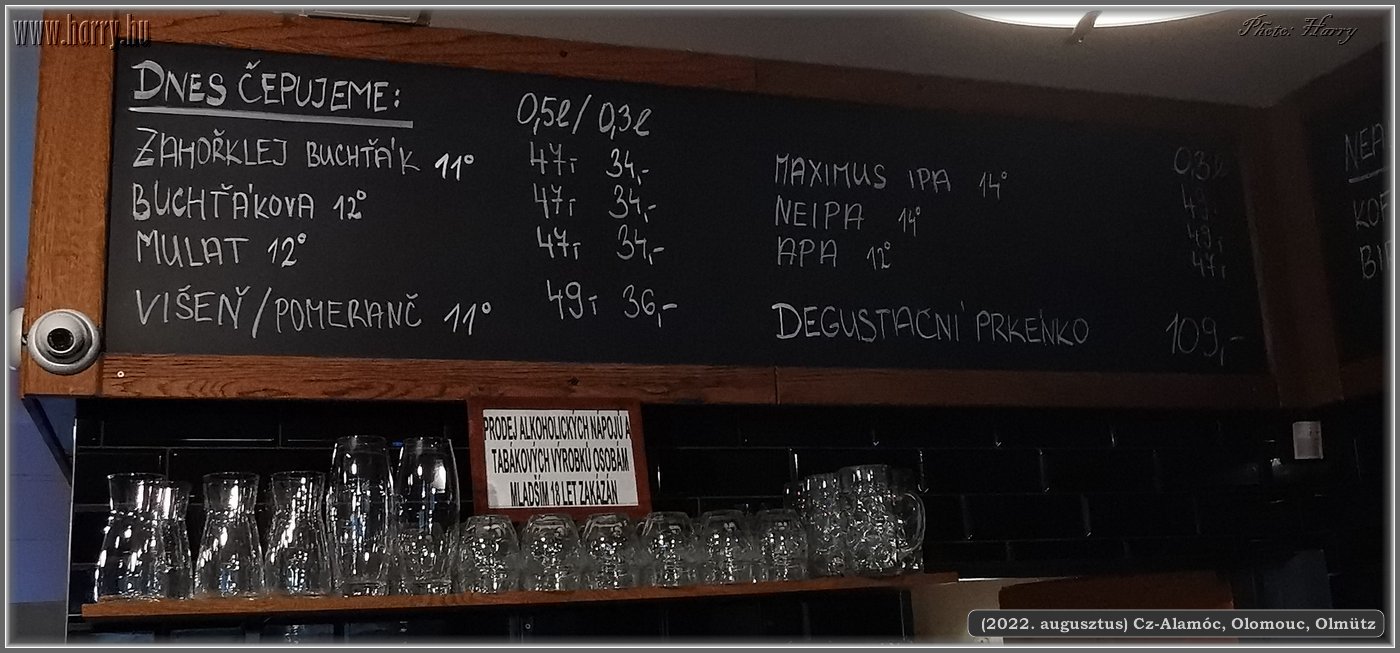 www.harry.hu
Photo: Harry
DNES ČEPUJEME:
0,5l / 0,3l
ZAHOŘKLEJ BUCHŤÁK 11° 47,- 34,-
BUCHŤÁKOVA 12° 47,- 34,-
MULAT 12° 47,- 34,-
VIŠEŇ/POMERANČ 11° 49,- 36,-
0,3l
MAXIMUS IPA 14° 49,-
NEIPA 14° 49,-
APA 12° 47,-
DEGUSTAČNÍ PRKÉNKO 109,-
PRODEJ ALKOHOLICKÝCH NÁPOJŮ A
TABÁKOVÝCH VÝROBKŮ OSOBÁM
MLADŠÍM 18 LET ZAKÁZÁN
(2022. augusztus) Cz-Alamóc, Olomouc, Olmütz